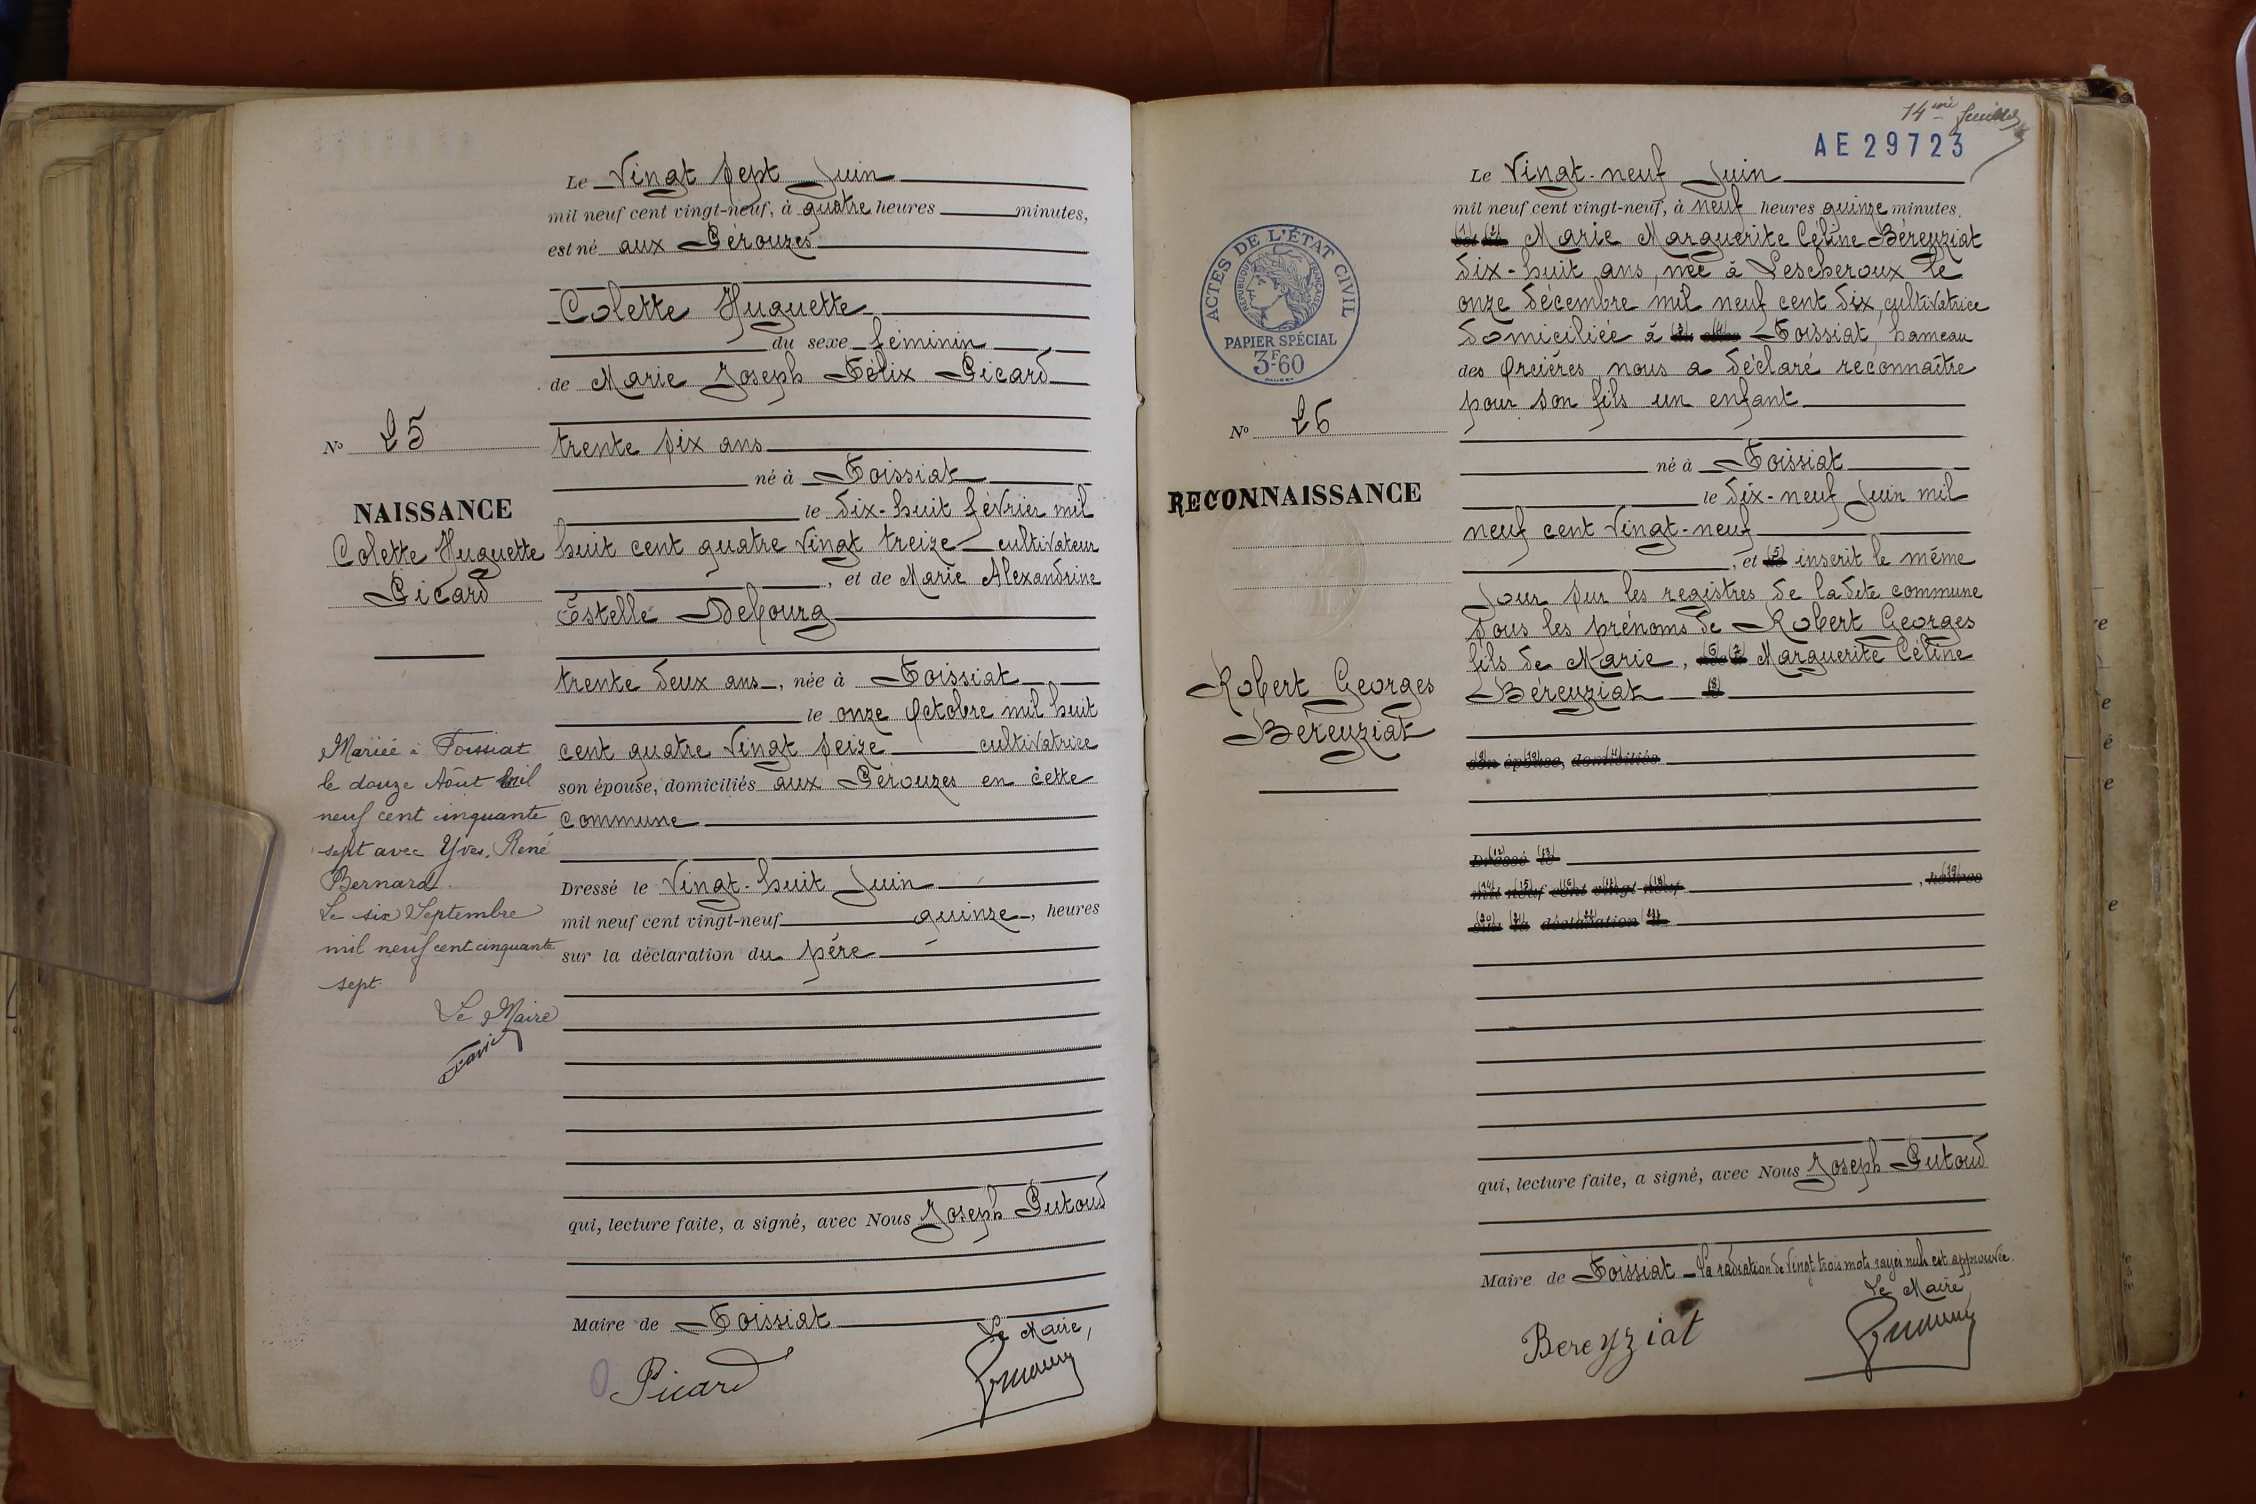 Le Vingt sept Juin
mil neuf cent vingt-neuf, à quatre heures minutes,
est né aux Pérouzes
Colette Huguette
du sexe féminin
de Marie Joseph Félix Picard
Nº 25
trente six ans
né à Foissiat
NAISSANCE
le dix-huit février mil
Colette Huguette
Picard
huit cent quatre vingt treize cultivateur
, et de Marie Alexandrine
Estelle Debourg
trente deux ans, née à Foissiat
le onze octobre mil huit
cent quatre vingt seize cultivatrice
son épouse, domiciliés aux Pérouzes en cette
commune
Mariée à Foissiat
le douze Août mil
neuf cent cinquante
sept avec Yves, René
Bernard.
Le six Septembre
mil neuf cent cinquante
sept.
Le Maire
Dressé le Vingt-huit Juin
mil neuf cent vingt-neuf quinze, heures
sur la déclaration du père
qui, lecture faite, a signé, avec Nous Joseph Putoud
Maire de Foissiat
Le Maire,
Picard
14me feuillet
AE 29723
Le Vingt-neuf Juin
mil neuf cent vingt-neuf, à neuf heures quinze minutes.
(1) (2) Marie Marguerite Céline Bereyziat
dix-huit ans, née à Lescheroux le
onze décembre mil neuf cent dix, cultivatrice
domiciliée à (3) (4) Foissiat, hameau
des nous a déclaré reconnaître
pour son fils un enfant
ACTES DE L'ÉTAT CIVIL
RÉPUBLIQUE FRANÇAISE
PAPIER SPÉCIAL
3F.60
Nº 26
RECONNAISSANCE
né à Foissiat
le dix-neuf Juin mil
neuf cent Vingt-neuf
, et (5) inscrit le même
jour sur les registres de ladite commune
sous les prénoms de Robert Georges
fils de Marie, (6) (7) Marguerite Céline
Béreyziat (8)
Robert Georges
Béreyziat
(9) son (10) épouse, (11) domiciliés
(12) Dressé (13) le
(14) mil (15) neuf (16) cent (17) vingt (18) neuf , (19) heures
(20) sur (21) la (22) déclaration (23)
qui, lecture faite, a signé, avec Nous Joseph Putoud
Maire de Foissiat La radiation de vingt trois mots rayés nuls est approuvée.
Le Maire,
Bereyziat